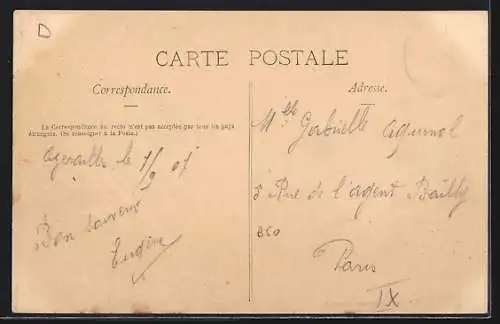 D
CARTE POSTALE
Correspondance.
Adresse.
La Correspondance au recto n'est pas acceptée par tous les pays
étrangers. (Se renseigner à la Poste.)
le 1/9 07
Bon souvenir
Eugène
Mlle Gabrielle
8 Rue de l'agent Bailly
Paris
IX